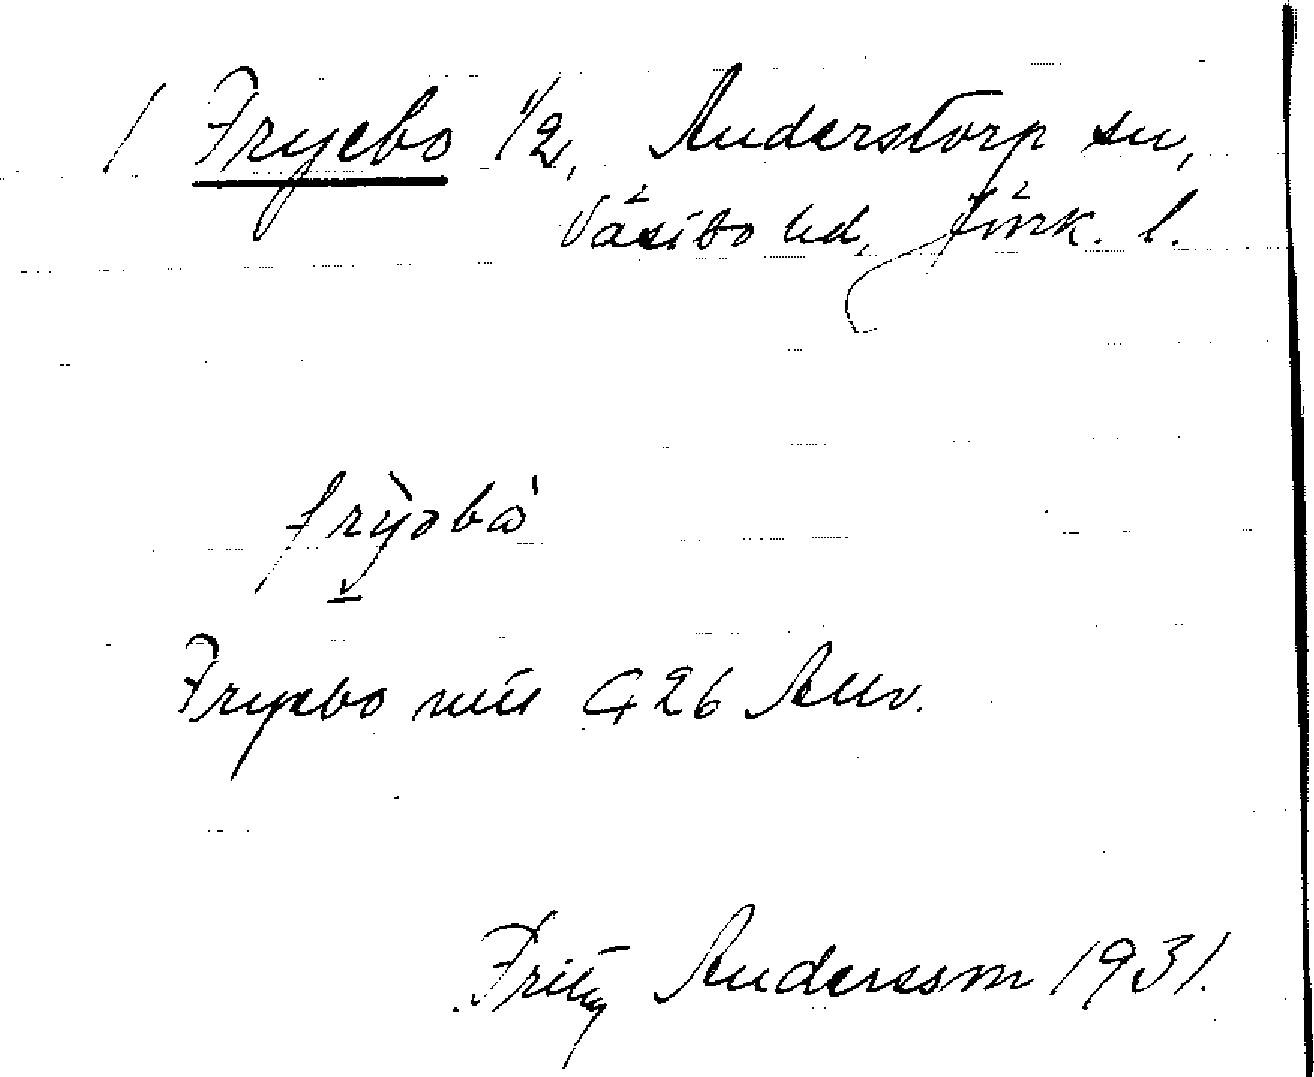 / Fryebo 1/2, Anderstorp sn,
Västbo hd, Jönk. l.
frỳəbω'
Fryebo nu G 26 Anv.
Fritz Andersson 1931.